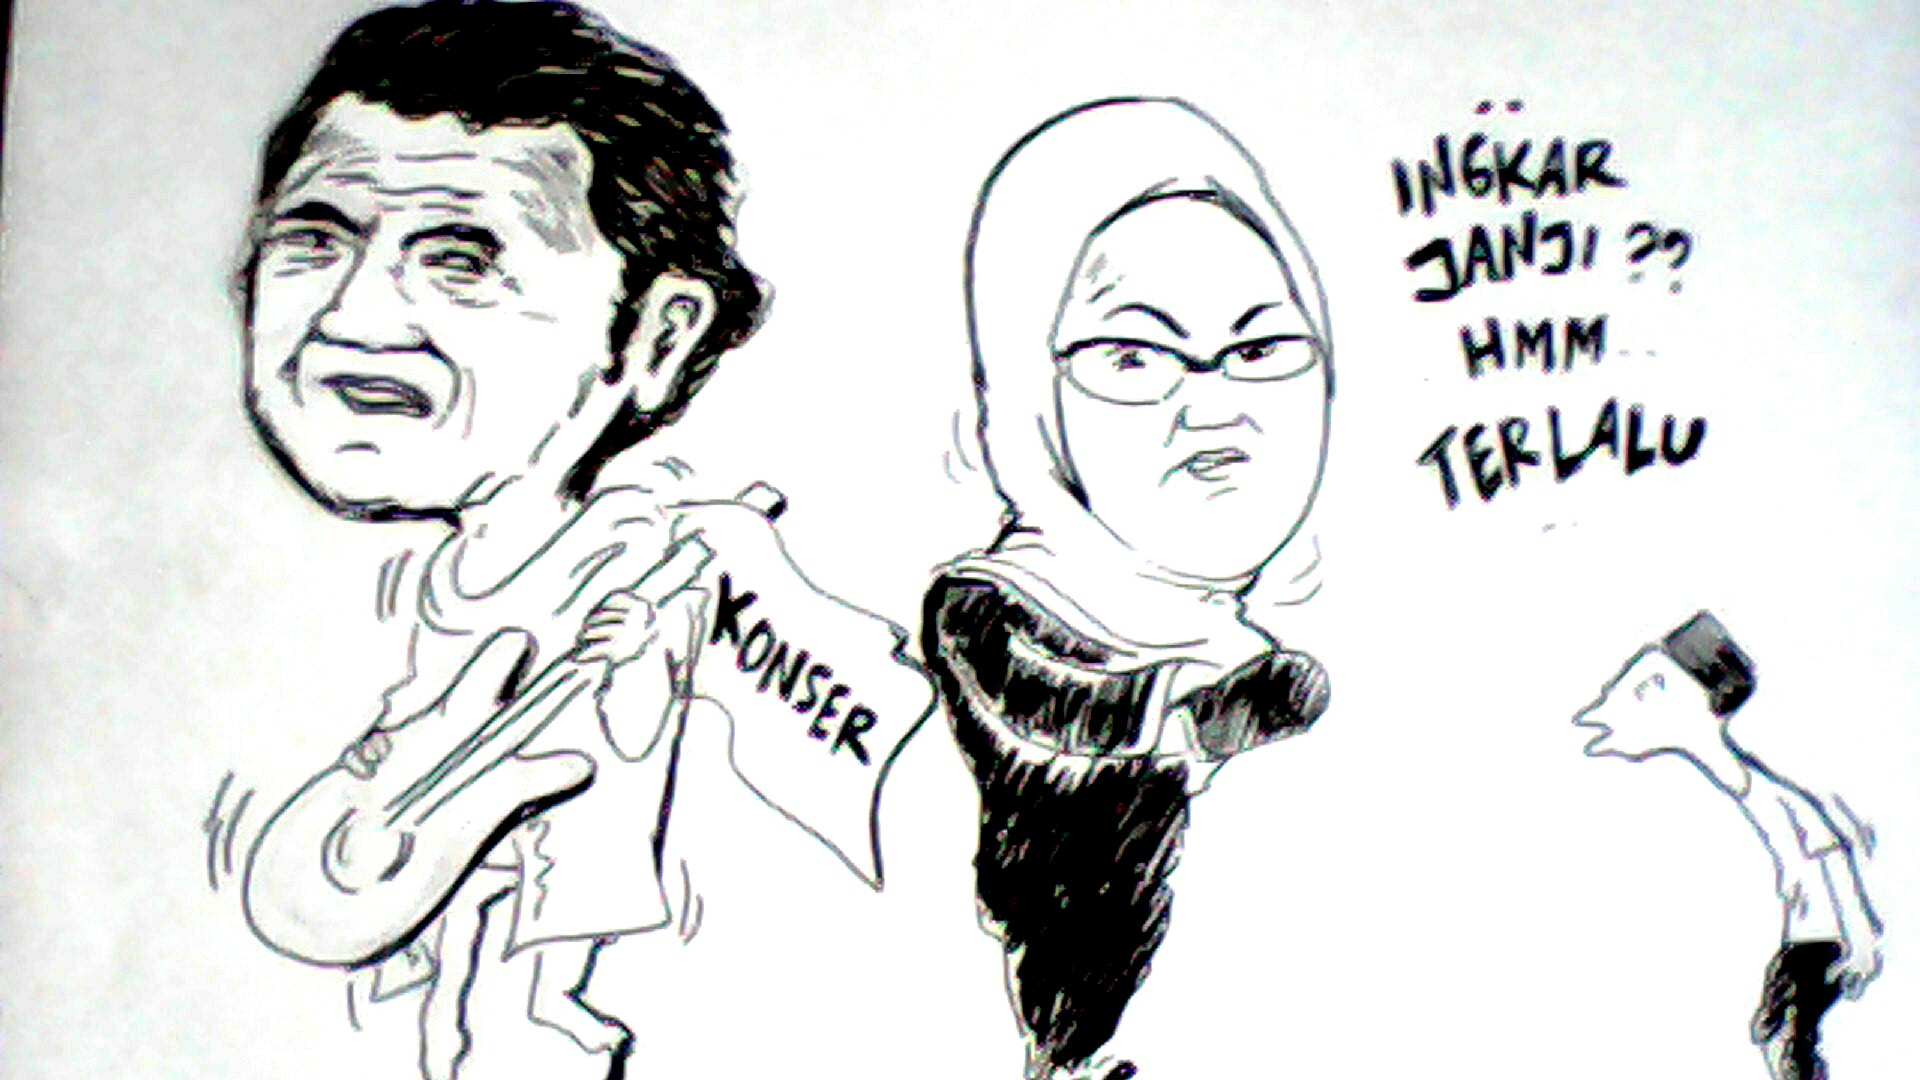 KONSER
..INGKAR
JANJI ??
HMM...
TERLALU
...